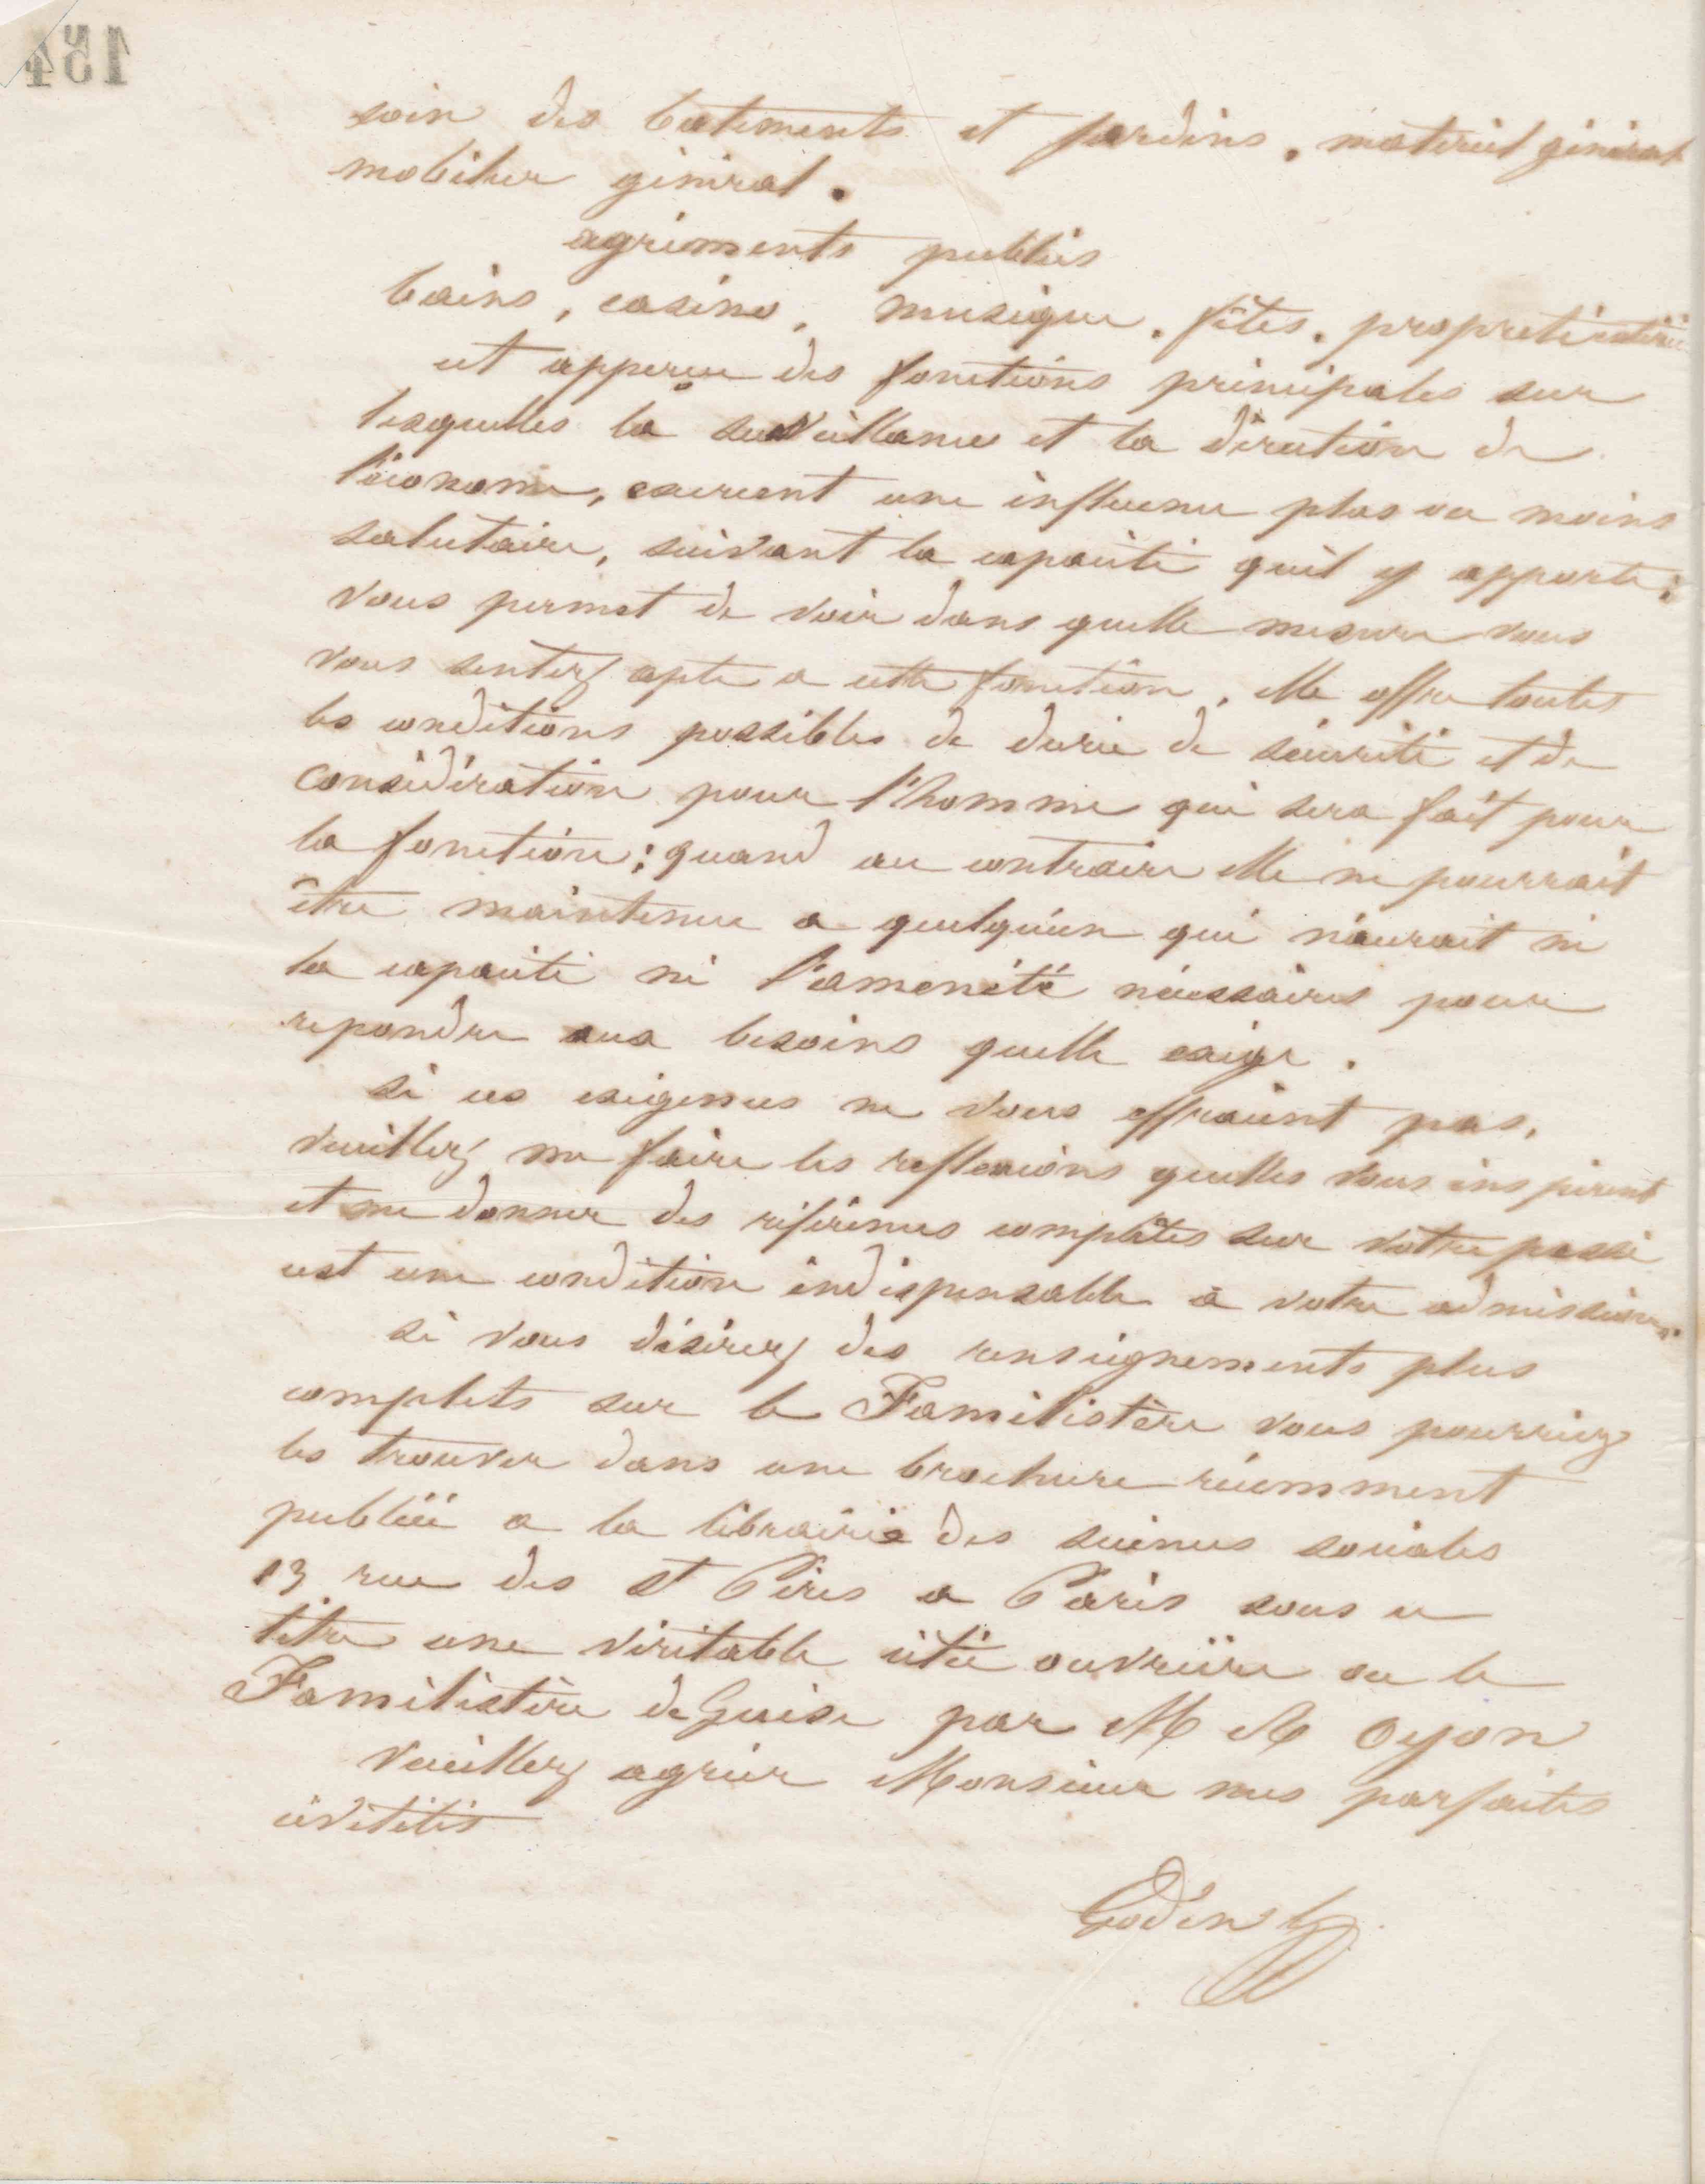 154
soin des batiments et jardins, matériel général
mobilier général.
agréments publics
bains, casino, musique, fêtes, propreté
cet apperçu des fonctions principales sur
lesquelles la surveillance et la direction de
l'économe, exercent une influence plus ou moins
salutaire, suivant la capacité quil y apporte;
vous permet de voir dans quelle mesure vous
vous sentez apte a cette fonction. Elle offre toutes
les conditions possibles de durée de sécurité et de
considération pour l'homme qui sera fait pour
la fonction; quand au contraire elle ne pourrait
être maintenue a quelqu'un qui n'aurait ni
la capacité ni l'aménité nécessaires pour
repondre aux besoins quelle exige.
si ces exigences ne vous effraient pas,
veuillez me faire les reflexions quelles vous inspirent
et me donner des références complètes sur votre passé
cest une condition indispensable à votre admission.
si vous désirez des renseignements plus
complets sur le Familistère vous pourriez
les trouver dans une brochure récemment
publiée a la librairie des sciences sociales
13 rue des St Pères a Paris sous ce
titre une véritable cité ouvrière ou le
Familistère de Guise par M A Oyon
veuillez agréer Monsieur mes parfaites
civilités
Godin